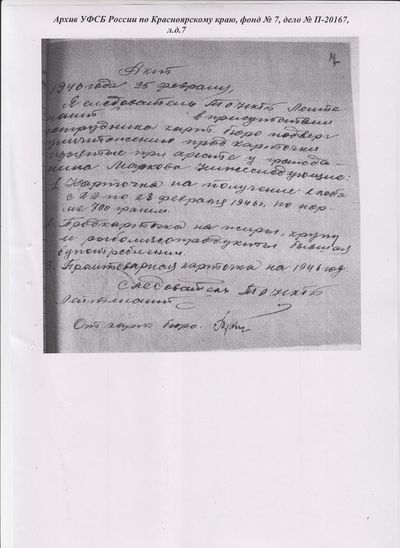 Архив УФСБ России по Красноярскому краю, фонд № 7, дело № П-20167,
л.д.7
7
Акт
1946 года 25 февраля,
Я следователь ТО НКГБ Лейте-
нант в присутствии
сотрудника карт. бюро подверг
уничтожению прод карточки
изъятые при аресте у гражда-
нина Маркова нижеследующие:
1. Карточка на получение хлеба
с 22 по 28 февраля 1946 г. по нор-
ме 700 грамм.
Продкарточка на жиры, крупу
и рыбомясопродукты бывшая
в употреблении.
3. Промтоварная карточка на 1946 год.
Следователь ТО НКГБ
Лейтенант
От карт. бюро.